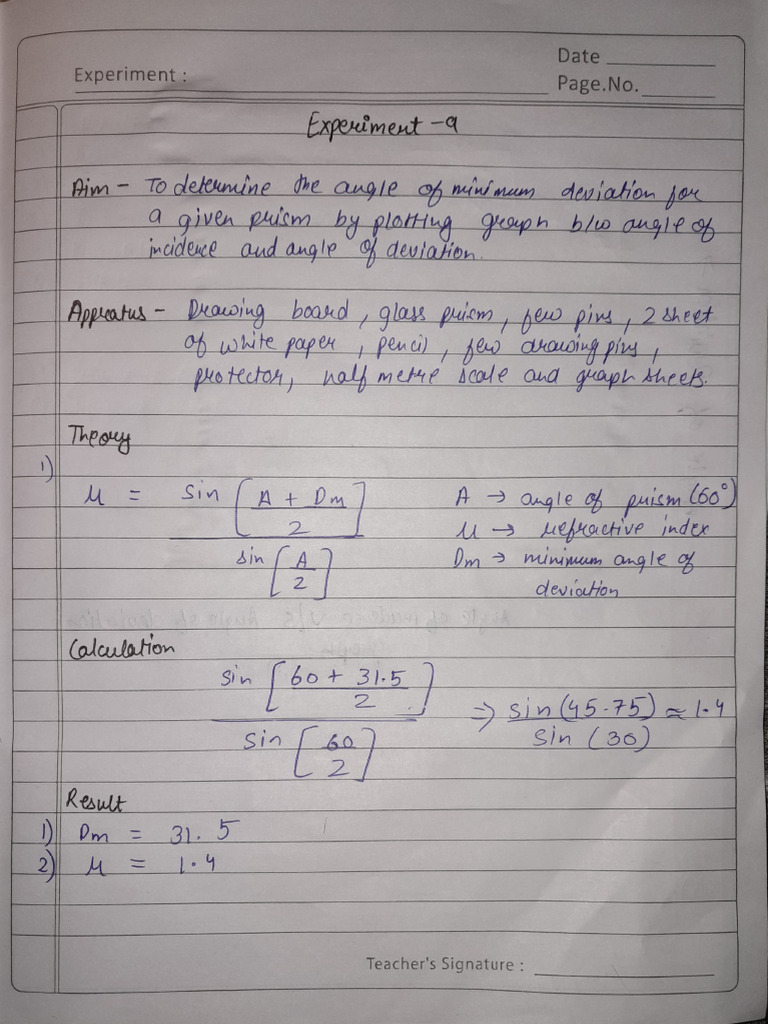 Date
Experiment :
Page.No.
Experiment -9
Aim - To determine the angle of minimum deviation for
a given prism by plotting graph b/w angle of
incidence and angle of deviation.
Appreatus - Drawing board, glass prism, few pins, 2 sheet
of white paper, pencil, few drawing pins,
protector, half metre scale and graph sheets.
Theory
1)
μ = sin [A + Dm / 2] / sin [A / 2]
A → angle of prism (60°)
μ → refractive index
Dm → minimum angle of
deviation
Calculation
sin [60 + 31.5 / 2] / sin [60 / 2] ⇒ sin (45.75) / sin (30) ≈ 1.4
Result
1) Dm = 31.5
2) μ = 1.4
Teacher's Signature :